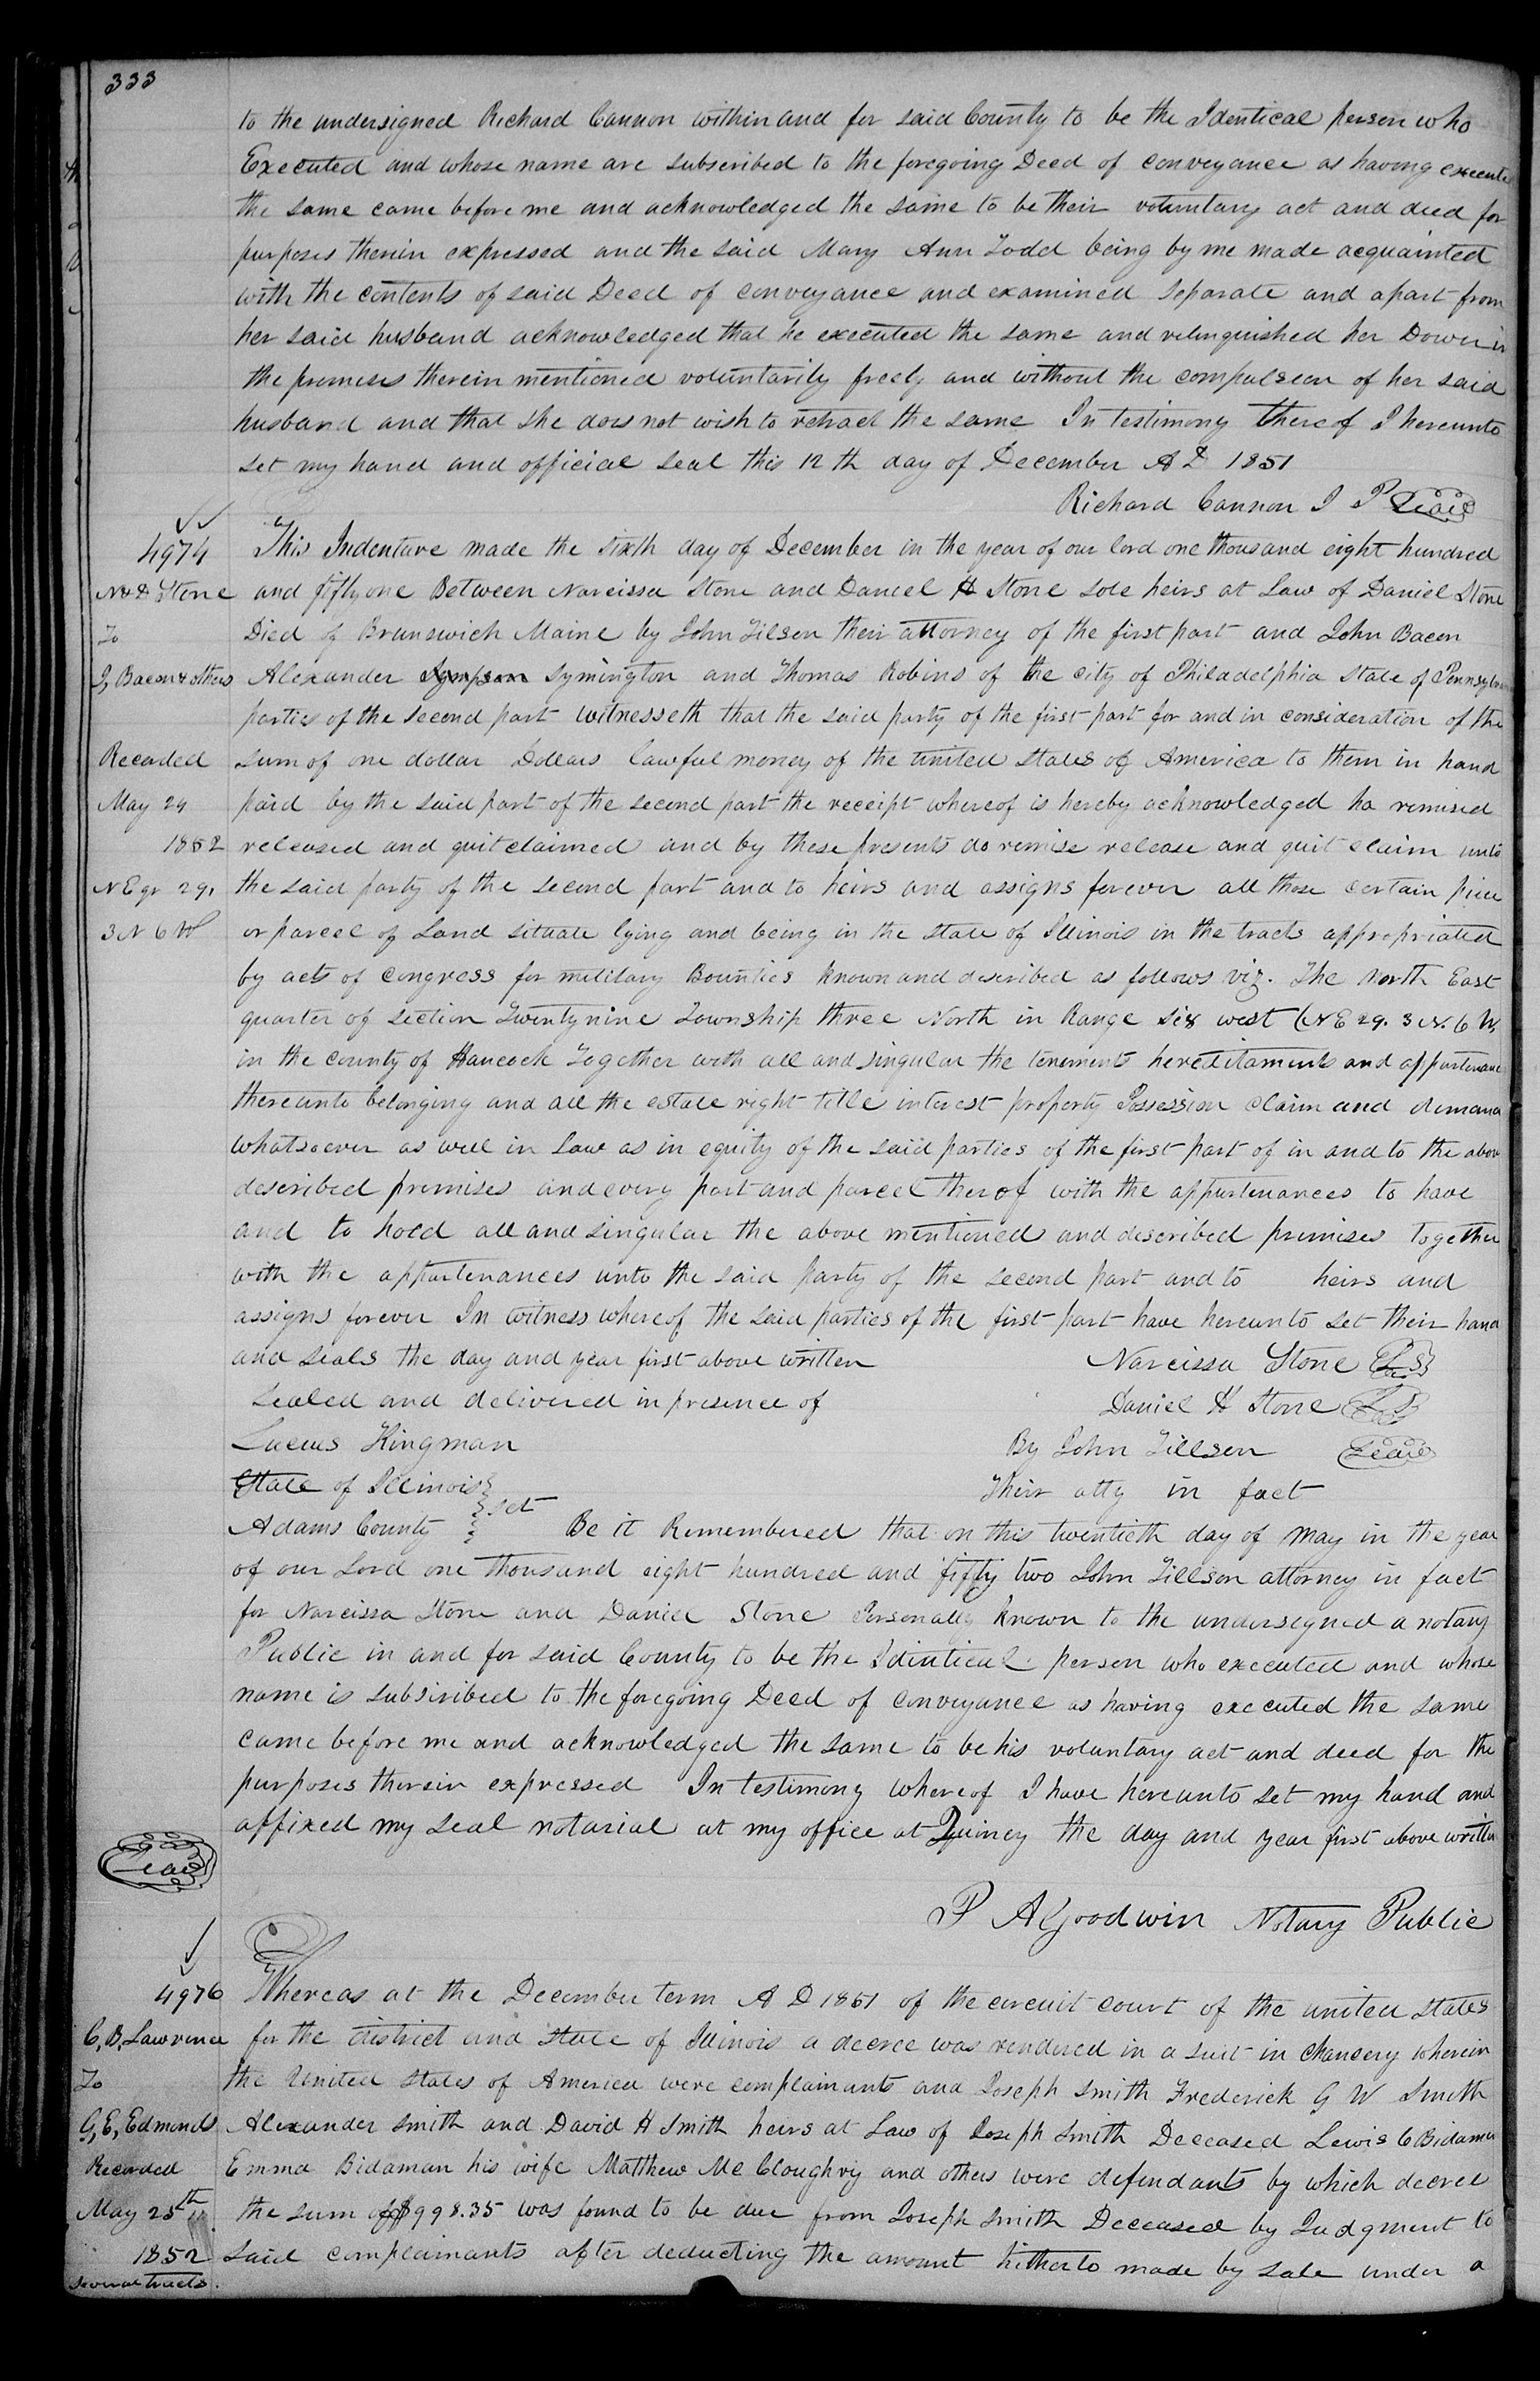 333
to the undersigned Richard Cannon within and for said County to be the Identical person who
Executed and whose name are subscribed to the foregoing Deed of conveyance as having execute
the same came before me and acknowledged the same to be their voluntary act and deed for
purposes therein expressed and the said Mary Ann Todd being by me made acquainted
with the contents of said Deed of conveyance and examined separate and apart from
her said husband acknowledged that he executed the same and relinquished her Dower in
the premises therein mentioned voluntarily freely and without the compulsion of her said
husband and that she does not wish to retract the same In testimony thereof I hereunto
set my hand and official seal this 12 th day of December A D 1851
Richard Cannon J P Seal
4974
N & D Stone
To
J, Bacon & others
Recorded
May 24
1852
N E qr 29,
3 N 6 W
This Indenture made the sixth day of December in the year of our lord one thousand eight hundred
and fifty one Between Narcissa Stone and Daniel H Stone sole heirs at Law of Daniel Stone
Died of Brunswich Maine by John Tilson their attorney of the first part and John Bacon
Alexander Sympson Symington and Thomas Robins of the city of Philadelphia State of Pennsylvan
parties of the second part witnesseth that the said party of the first part for and in consideration of the
sum of one dollar Dollars lawful money of the united States of America to them in hand
paid by the said part of the second part the receipt whereof is hereby acknowledged ha remised
released and quitclaimed and by these presents do remise release and quit claim unto
the said party of the second part and to heirs and assigns forever all those certain piece
or parcel of Land situate lying and being in the state of Illinois in the tracts appropriated
by acts of congress for military Bounties known and described as follows viz. The North East
quarter of section Twenty nine Township three North in Range six west (N E 29. 3 N. 6 W,
in the county of Hancock Together with all and singular the tenements hereditaments and appurtenanc
thereunto belonging and all the estate right title interest property Possession claim and demand
whatsoever as well in Law as in equity of the said parties of the first part of in and to the above
described premises and every part and parcel therof with the appurtenances to have
and to hold all and singular the above mentioned and described premises together
with the appurtenances unto the said party of the second part and to heirs and
assigns forever In witness whereof the said parties of the first part have hereunto set their hand
and seals the day and year first above written Narcissa Stone L S
Sealed and delivered in presence of Daniel H Stone L S
Lucius Kingman By John Tillson Seal
State of Illinois Their atty in fact
Adams County } sct Be it Remembered that on this twentieth day of May in the year
of our Lord one thousand eight hundred and fifty two John Tillson attorney in fact
for Narcissa Stone and Daniel Stone Personally known to the undersigned a notary
Public in and for said County to be the Identical person who executed and whose
name is subscribed to the foregoing Deed of conveyance as having executed the same
came before me and acknowledged the same to be his voluntary act and deed for the
purposes therein expressed In testimony whereof I have hereunto set my hand and
affixed my seal notarial at my office at Quincy the day and year first above written
Seal
P A Goodwin Notary Public
4976
C, B, Lawrence
To
G, E, Edmonds
Recorded
May 25th
1852
several tracts.
Whereas at the December term A D 1851 of the circuit court of the united states
for the district and state of Illinois a decree was rendered in a suit in chancery wherein
the United States of America were complainants and Joseph Smith Frederick G W Smith
Alexander Smith and David H Smith heirs at Law of Joseph Smith Deceased Lewis C Bidamon
Emma Bidaman his wife Matthew Mc Cloughry and others were defendants by which decree
the sum of $998.35 was found to be due from Joseph Smith Deceased by Judgment to
said complainants after deducting the amount hitherto made by sale under a